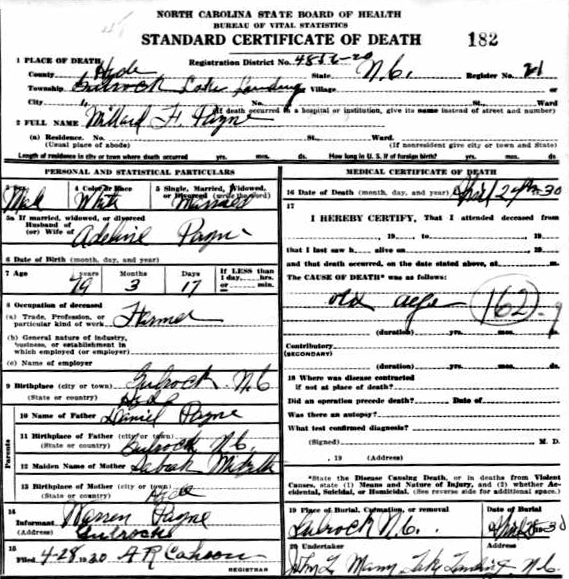 NORTH CAROLINA STATE BOARD OF HEALTH
BUREAU OF VITAL STATISTICS
STANDARD CERTIFICATE OF DEATH 182
1 PLACE OF DEATH Registration District No. 48
County Hyde State N.C. Register No. 21
Township Gulrock Lake Landing or Village or
City No. St., Ward
(If death occurred in a hospital or institution, give its name instead of street and number)
2 FULL NAME Millard F. Payne
(a) Residence. No. St., Ward.
(Usual place of abode) (If nonresident give city or town and State)
Length of residence in city or town where death occurred yrs. mos. ds. How long in U. S. if of foreign birth? yrs. mos. ds.
PERSONAL AND STATISTICAL PARTICULARS
4 Color or Race 5 Single, Married, Widowed,
or Divorced (write the word)
Male White Married
5a If married, widowed, or divorced
Husband of
(or) Wife of Adeline Payne
6 Date of Birth (month, day, and year)
7 Age years Months Days If LESS than
1 day, hrs.
or min.
79 3 17
8 Occupation of deceased
(a) Trade, Profession, or
particular kind of work Farmer
(b) General nature of industry,
business, or establishment in
which employed (or employer)
(c) Name of employer
9 Birthplace (city or town) Gulrock N.C
(State or country) Hyde
Parents
10 Name of Father Daniel Payne
11 Birthplace of Father (city or town)
(State or country) Gulrock N.C.
12 Maiden Name of Mother
13 Birthplace of Mother
(State or country) Hyde
14
Informant Warren Payne
(Address) Gulrock
15
Filed 4-28 1930 A R Cahoon
MEDICAL CERTIFICATE OF DEATH
16 Date of Death (month, day, and year) April 27th 30
17
I HEREBY CERTIFY, That I attended deceased from
, 19 , to , 19
that I last saw h alive on , 19
and that death occurred, on the date stated above, at m.
The CAUSE OF DEATH* was as follows:
old age 162
(duration) yrs. mos. ds.
Contributory
(SECONDARY)
(duration) yrs. mos. ds.
18 Where was disease contracted
if not at place of death?
Did an operation precede death? Date of
Was there an autopsy?
What test confirmed diagnosis?
(Signed) M. D.
, 19 (Address)
*State the Disease Causing Death, or in deaths from Violent
Causes, state (1) Means and Nature of Injury, and (2) whether Ac-
cidental, Suicidal, or Homicidal. (See reverse side for additional space.)
19 Place of Burial, Cremation, or removal Date of Burial
Gulrock N.C. April 28 30
20 Undertaker (Address)
N.C.